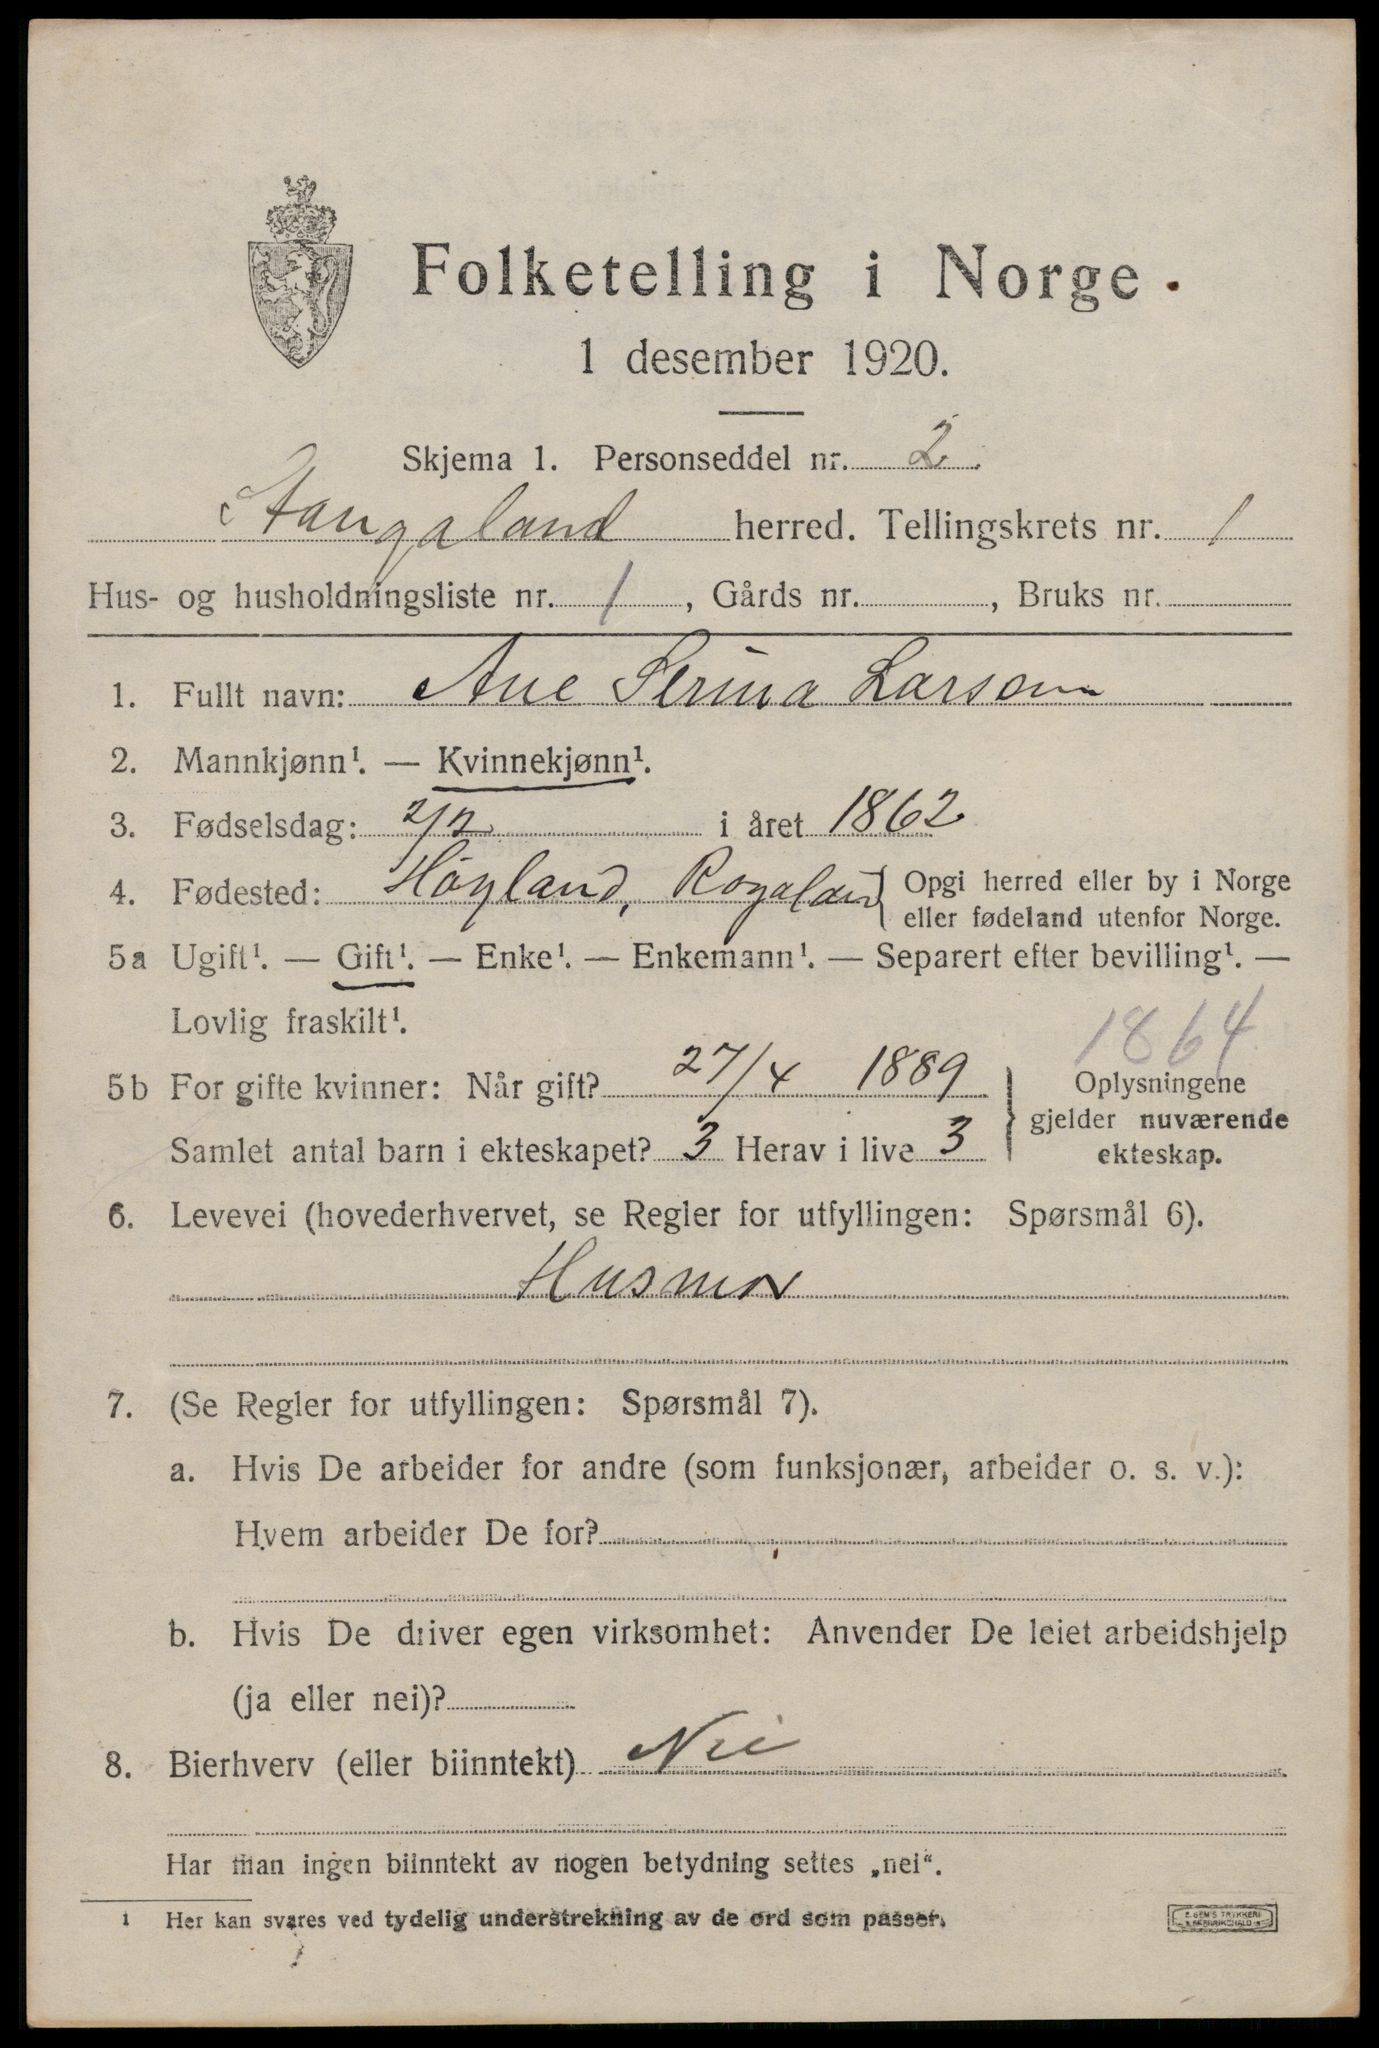 Folketelling i Norge
1 desember 1920.
Skjema 1. Personseddel nr. 2
Stangaland herred. Tellingskrets nr. 1
Hus- og husholdningsliste nr. 1, Gårds nr. , Bruks nr.
1. Fullt navn: Ane Serina Larsen
2. Mannkjønn¹. — Kvinnekjønn¹.
3. Fødselsdag: 2/2 i året 1862
4. Fødested: Höyland, Rogaland } Opgi herred eller by i Norge
eller fødeland utenfor Norge.
5a Ugift¹. — Gift¹. — Enke¹. — Enkemann¹. — Separert efter bevilling¹. —
Lovlig fraskilt¹.
1864
5b For gifte kvinner: Når gift? 27/4 1889
Samlet antal barn i ekteskapet? 3 Herav i live 3
Oplysningene
gjelder nuværende
ekteskap.
6. Levevei (hovederhvervet, se Regler for utfyllingen: Spørsmål 6).
Husmor
7. (Se Regler for utfyllingen: Spørsmål 7).
a. Hvis De arbeider for andre (som funksjonær, arbeider o. s. v.):
Hvem arbeider De for?
b. Hvis De driver egen virksomhet: Anvender De leiet arbeidshjelp
(ja eller nei)?
8. Bierhverv (eller biinntekt) Nei
Har man ingen biinntekt av nogen betydning settes „nei“.
¹ Her kan svares ved tydelig understrekning av de ord som passer.